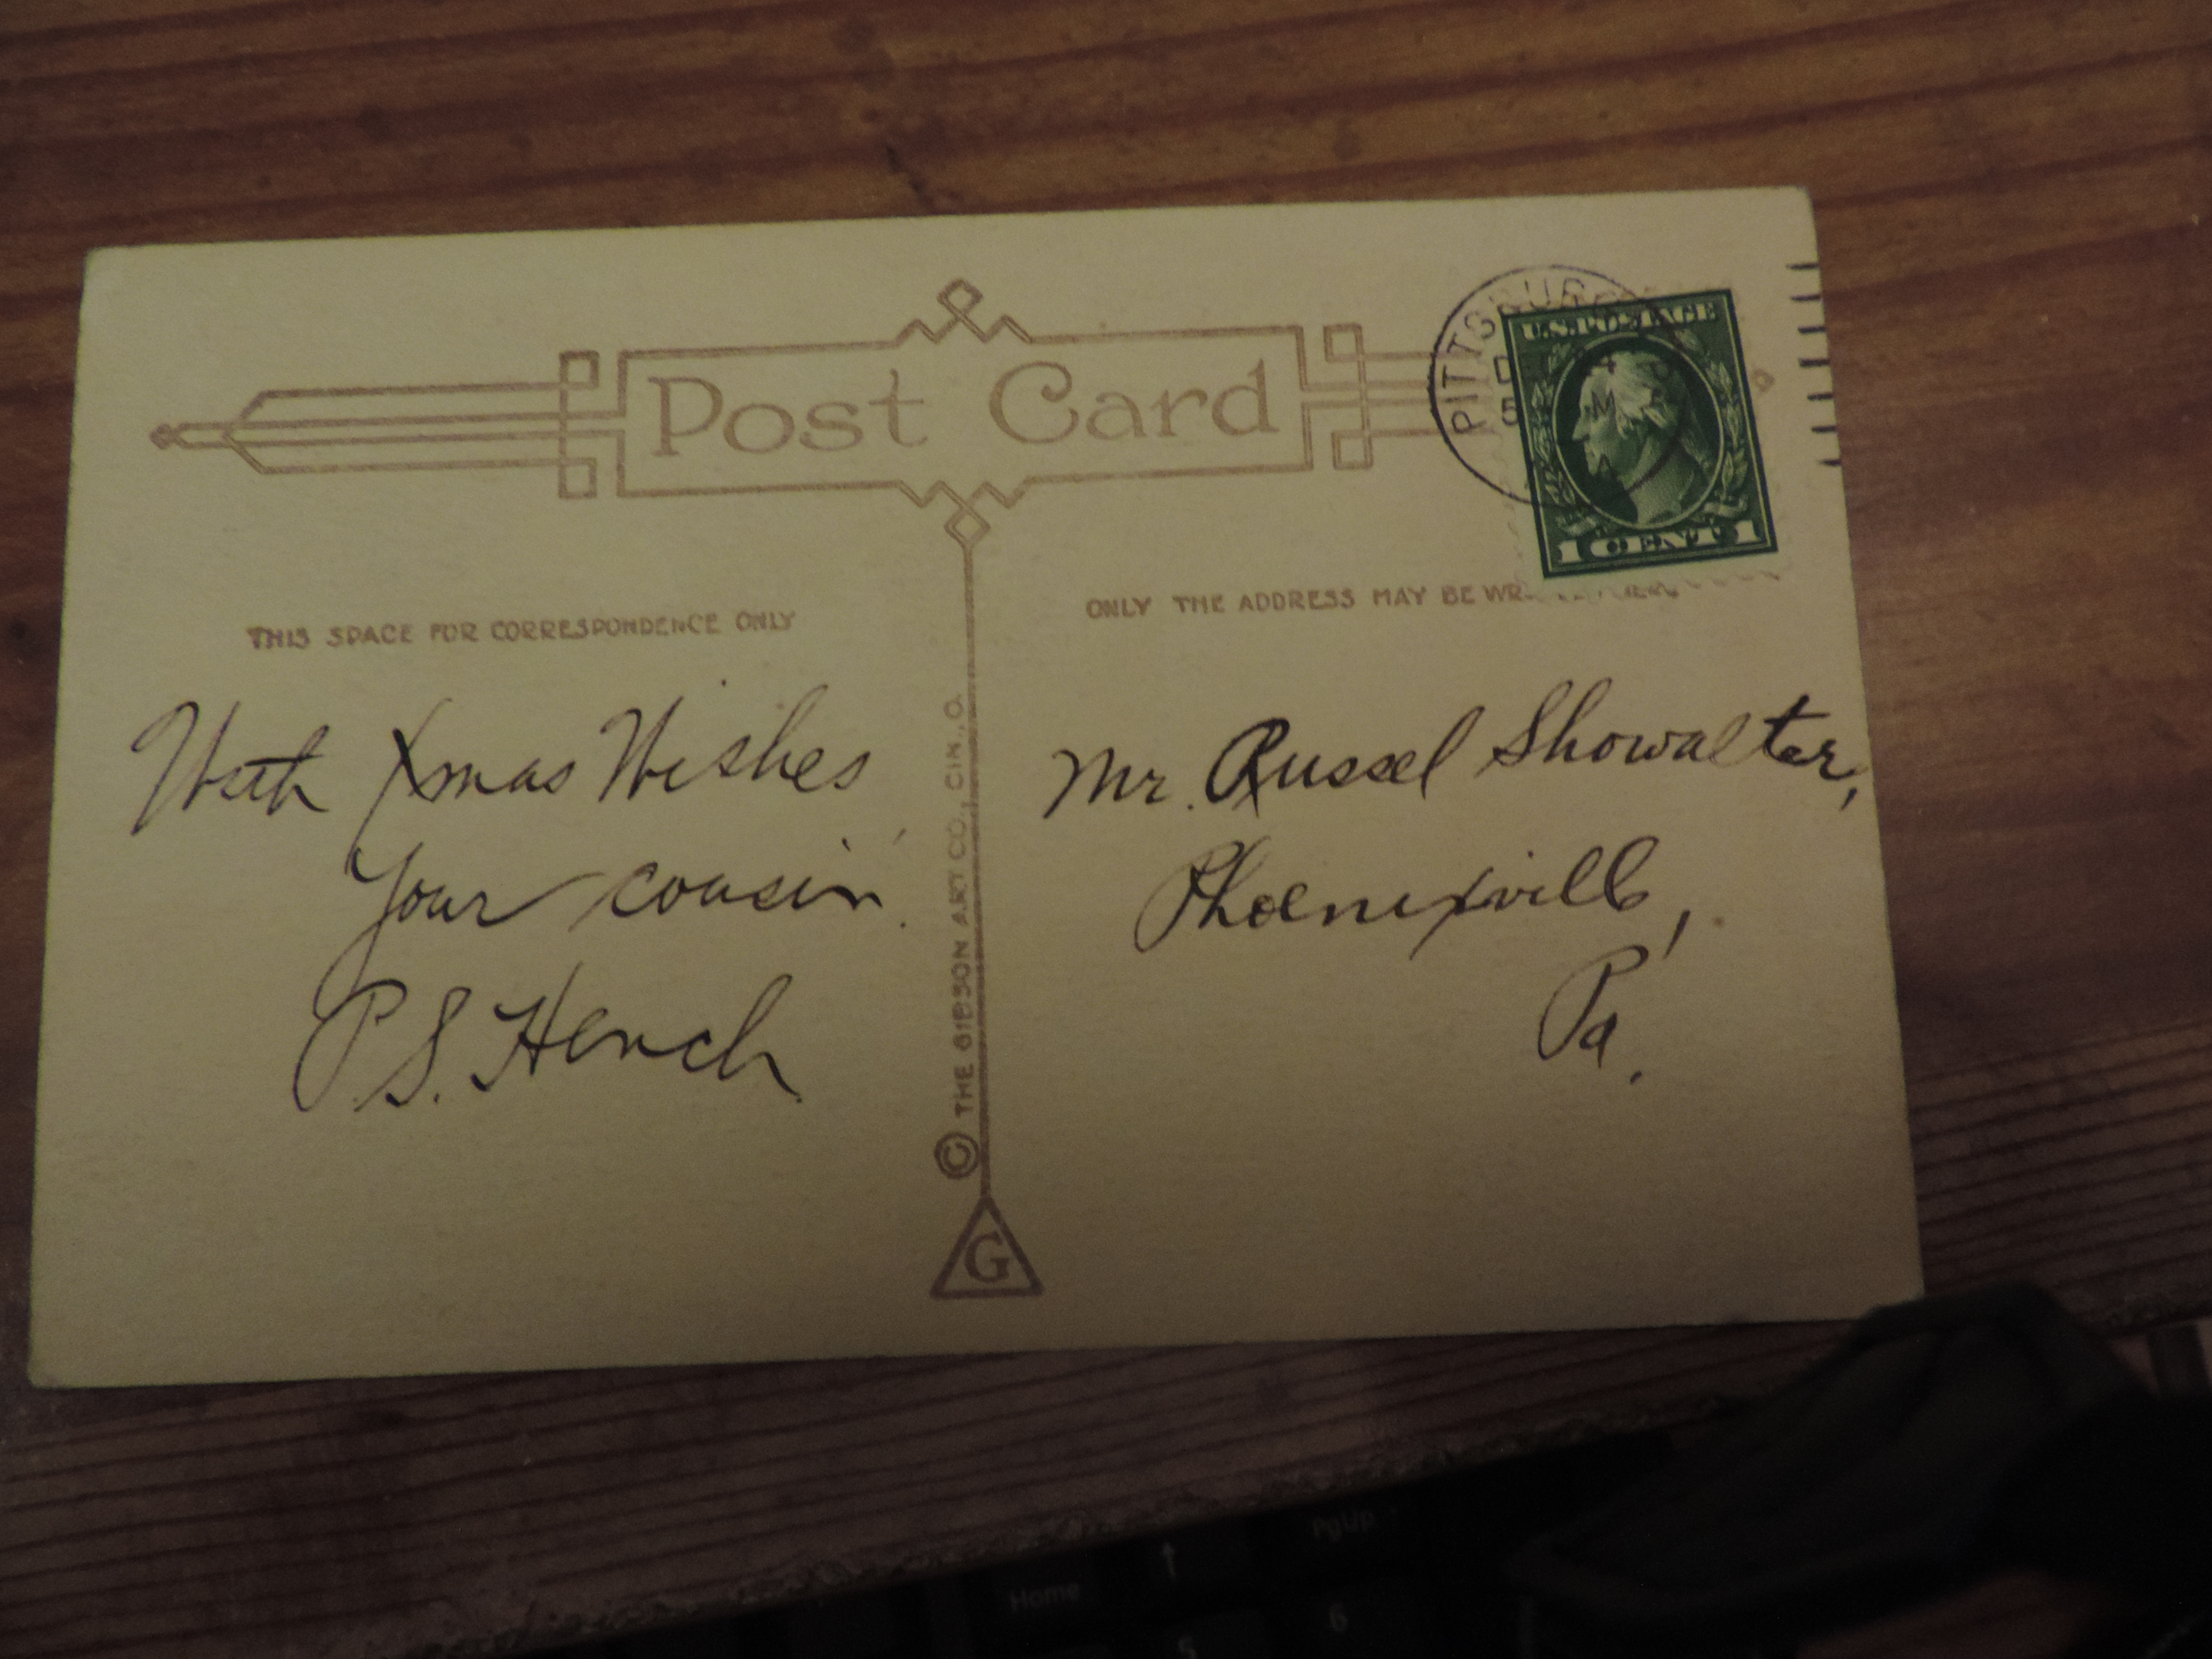 Post Card
PITTSBUR
U.S. POSTAGE
1 CENT 1
THIS SPACE FOR CORRESPONDENCE ONLY
ONLY THE ADDRESS MAY BE
With Xmas Wishes
Your cousin
P.S. Hench
© THE GIBSON ART CO., CIN., O.
G
Mr. Russel Showalter,
Phoenixville,
Pa.
Home
↑
PgUp
5
6